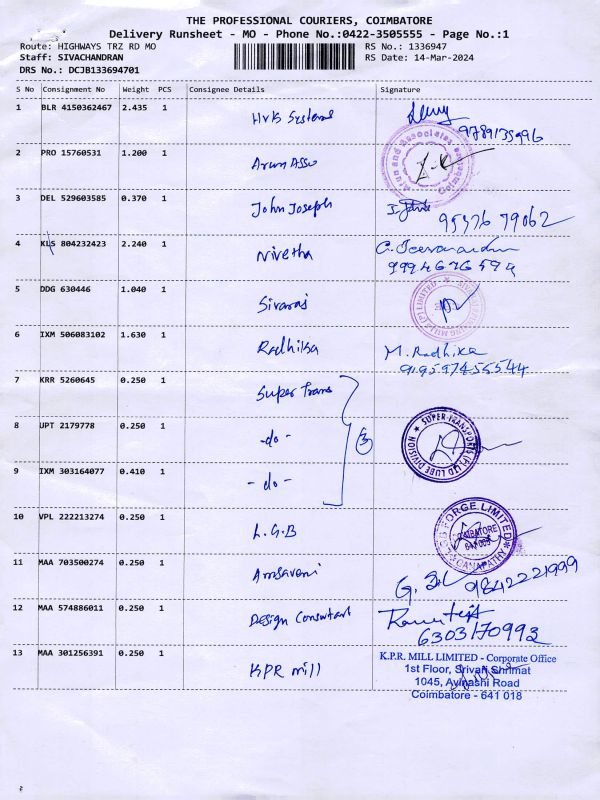 THE PROFESSIONAL COURIERS, COIMBATORE
Delivery Runsheet - MO - Phone No.:0422-3505555 - Page No.:1
Route: HIGHWAYS TRZ RD MO RS No.: 1336947
Staff: SIVACHANDRAN RS Date: 14-Mar-2024
DRS No.: DCJB133694701
S No Consignment No Weight PCS Consignee Details Signature
1 BLR 4150362467 2.435 1 HVK Systems
9789135996
2 PRO 15760531 1.200 1 Arun Asso
Arun and Associates Coimbatore
3 DEL 529603585 0.370 1 John Joseph
95976 79062
4 KLS 804232423 2.240 1 Nivetha G. Jeevanandham
5 DDG 630446 1.040 1 Sivaraj
MILLS (P) LIMITED
6 IXM 506083102 1.630 1 Radhika M. Radhika
7 KRR 5260645 0.250 1 Super Trans
8 UPT 2179778 0.250 1 -do- 3
SUPER TRANSPORTS (P) LTD LUBE DIVISION
9 IXM 303164077 0.410 1 -do-
10 VPL 222213274 0.250 1 L.G.B
FORGE LIMITED COIMBATORE GANAPATHY
11 MAA 703500274 0.250 1
9842221999
12 MAA 574886011 0.250 1 Design Consultant
6303170993
13 MAA 301256391 0.250 1 KPR mill
K.P.R. MILL LIMITED - Corporate Office
1st Floor, Srivari Shrimat
1045, Avinashi Road
Coimbatore - 641 018